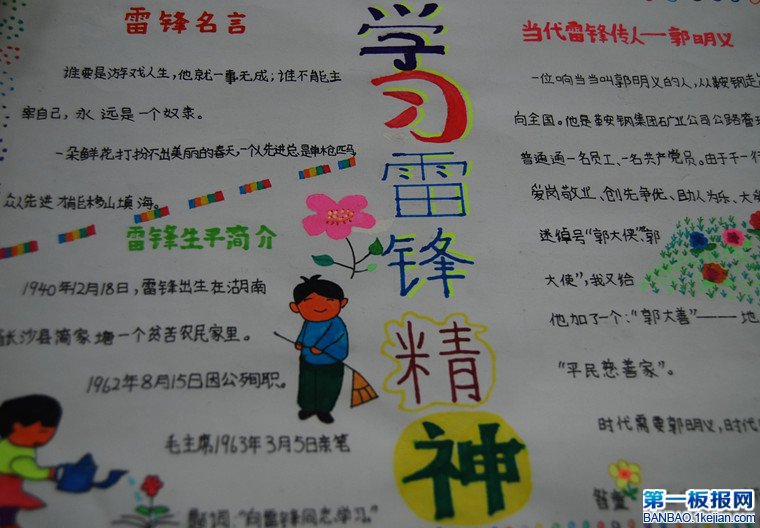 雷锋名言
谁要是游戏人生，他就一事无成；谁不能主
宰自己，永远是一个奴隶。
一朵鲜花打扮不出美丽的春天，一个人先进总是单枪匹马，
众人先进才能移山填海。
雷锋生平简介
1940年12月18日，雷锋出生在湖南
长沙县简家塘一个贫苦农民家里。
1962年8月15日因公殉职。
毛主席1963年3月5日亲笔
题词："向雷锋同志学习。"
学
习
雷
锋
精
神
当代雷锋传人——郭明义
一位响当当叫郭明义的人，从鞍钢走
向全国。他是鞍安钢集团矿业公司公路
普通通一名员工、一名共产党员。由于干一行
爱岗敬业、创先争优、助人为乐、大
迷绰号"郭大侠"，郭
大使"，我又给
他加了个："郭大善"——地
"平民慈善家"。
时代需要郭明义，时代
第一板报网
BANBAO.1kejian.com